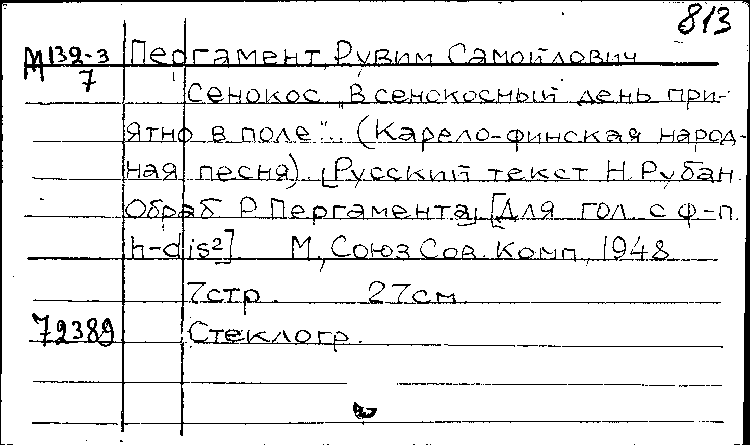 813
М132-3
7
Пергамент, Рувим Самойлович
Сенокос „В сенокосный день при-
ятно в поле"... (Карело-финская народ-
ная песня). [Русский текст Н. Рубан.
Обраб. Р. Пергамента]. [Для гол. с ф-п.
h-dis²]. М., Союз Сов. Комп., 1948
7стр. 27см.
72389
Стеклогр.